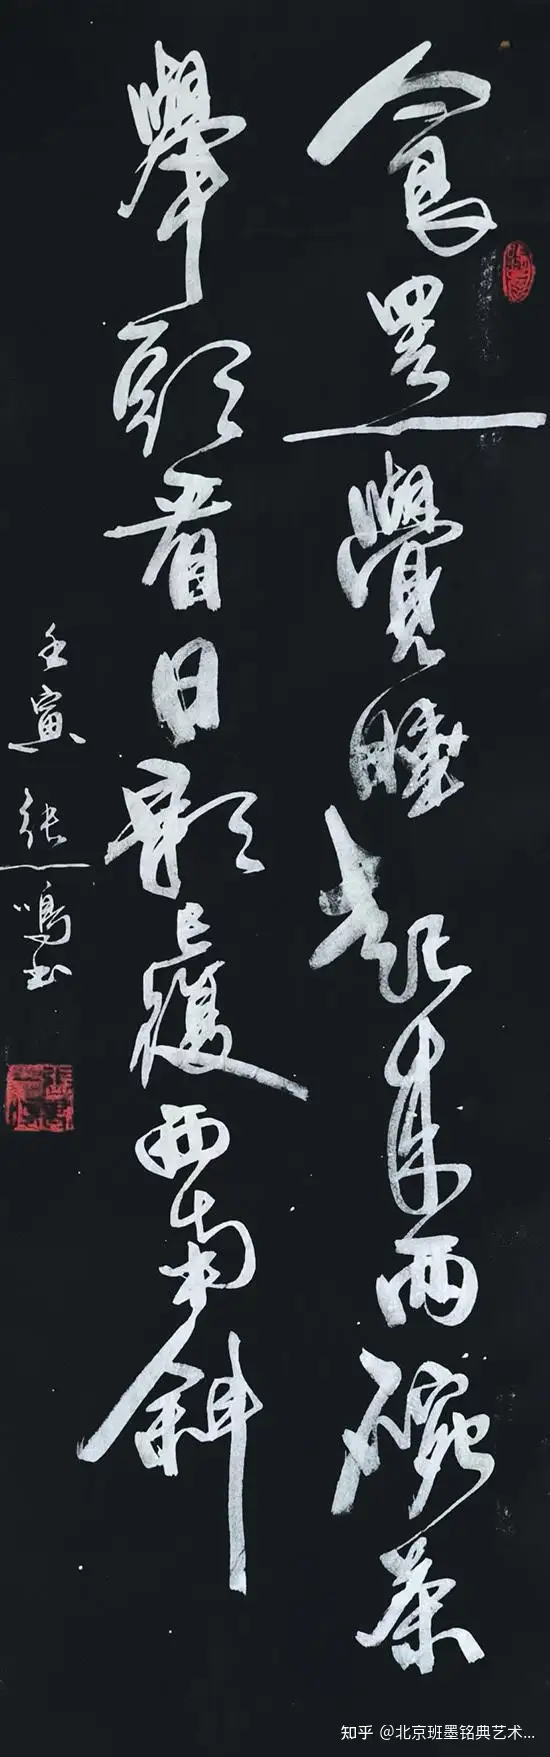 食罢一覺睡起来兩碗茶
舉頭看日影已復西南斜
壬寅 张一鳴书
知乎 @北京班墨铭典艺术...